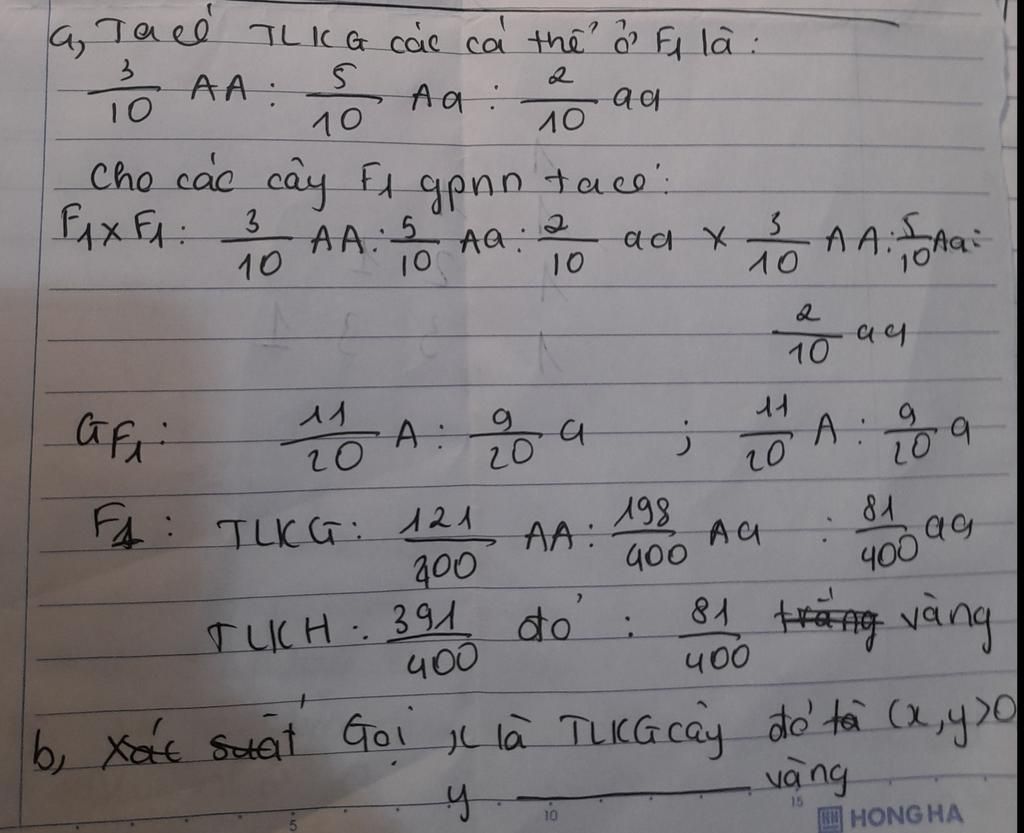 a, Ta có TLKG các cá thể ở F1 là:
3/10 AA : 5/10 Aa : 2/10 aa
Cho các cây F1 gpnn ta có:
F1 x F1: 3/10 AA : 5/10 Aa : 2/10 aa x 3/10 AA : 5/10 Aa :
2/10 aa
GF1: 11/20 A : 9/20 a ; 11/20 A : 9/20 a
F1: TLKG: 121/400 AA : 198/400 Aa : 81/400 aa
TLKH: 391/400 đỏ : 81/400 trắng vàng
b, Xác suất Gọi x là TLKG cây đỏ là (x,y>0
y ——— vàng
5 10 15
HONG HA